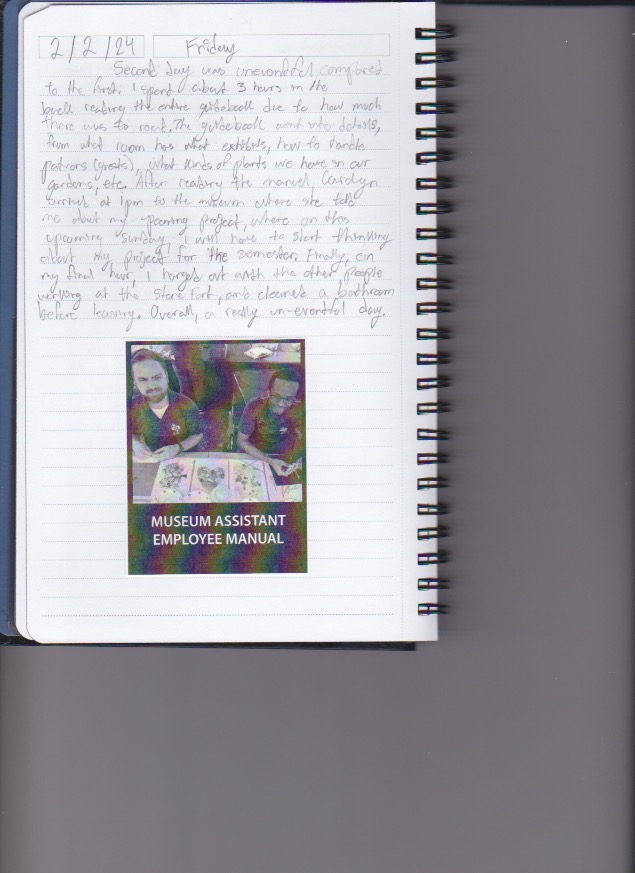 2/2/24 Friday
Second day was uneventful compared
to the first. I spend about 3 hours in the
back reading the entire guidebook due to how much
there was to read. The guidebook went into details,
from what room has what exhibits, how to handle
patrons (guests), what kinds of plants we have in our
gardens, etc. After reading the manual, Carolyn
arrives at 1pm to the museum where she tells
me about my upcoming project, where on this
upcoming Sunday, I will have to start thinking
about my project for the semester. Finally, on
my final hour, I hanged out with the other people
working at the Stone Fort, and cleaned a bathroom
before leaving. Overall, a really un-eventful day.
MUSEUM ASSISTANT
EMPLOYEE MANUAL